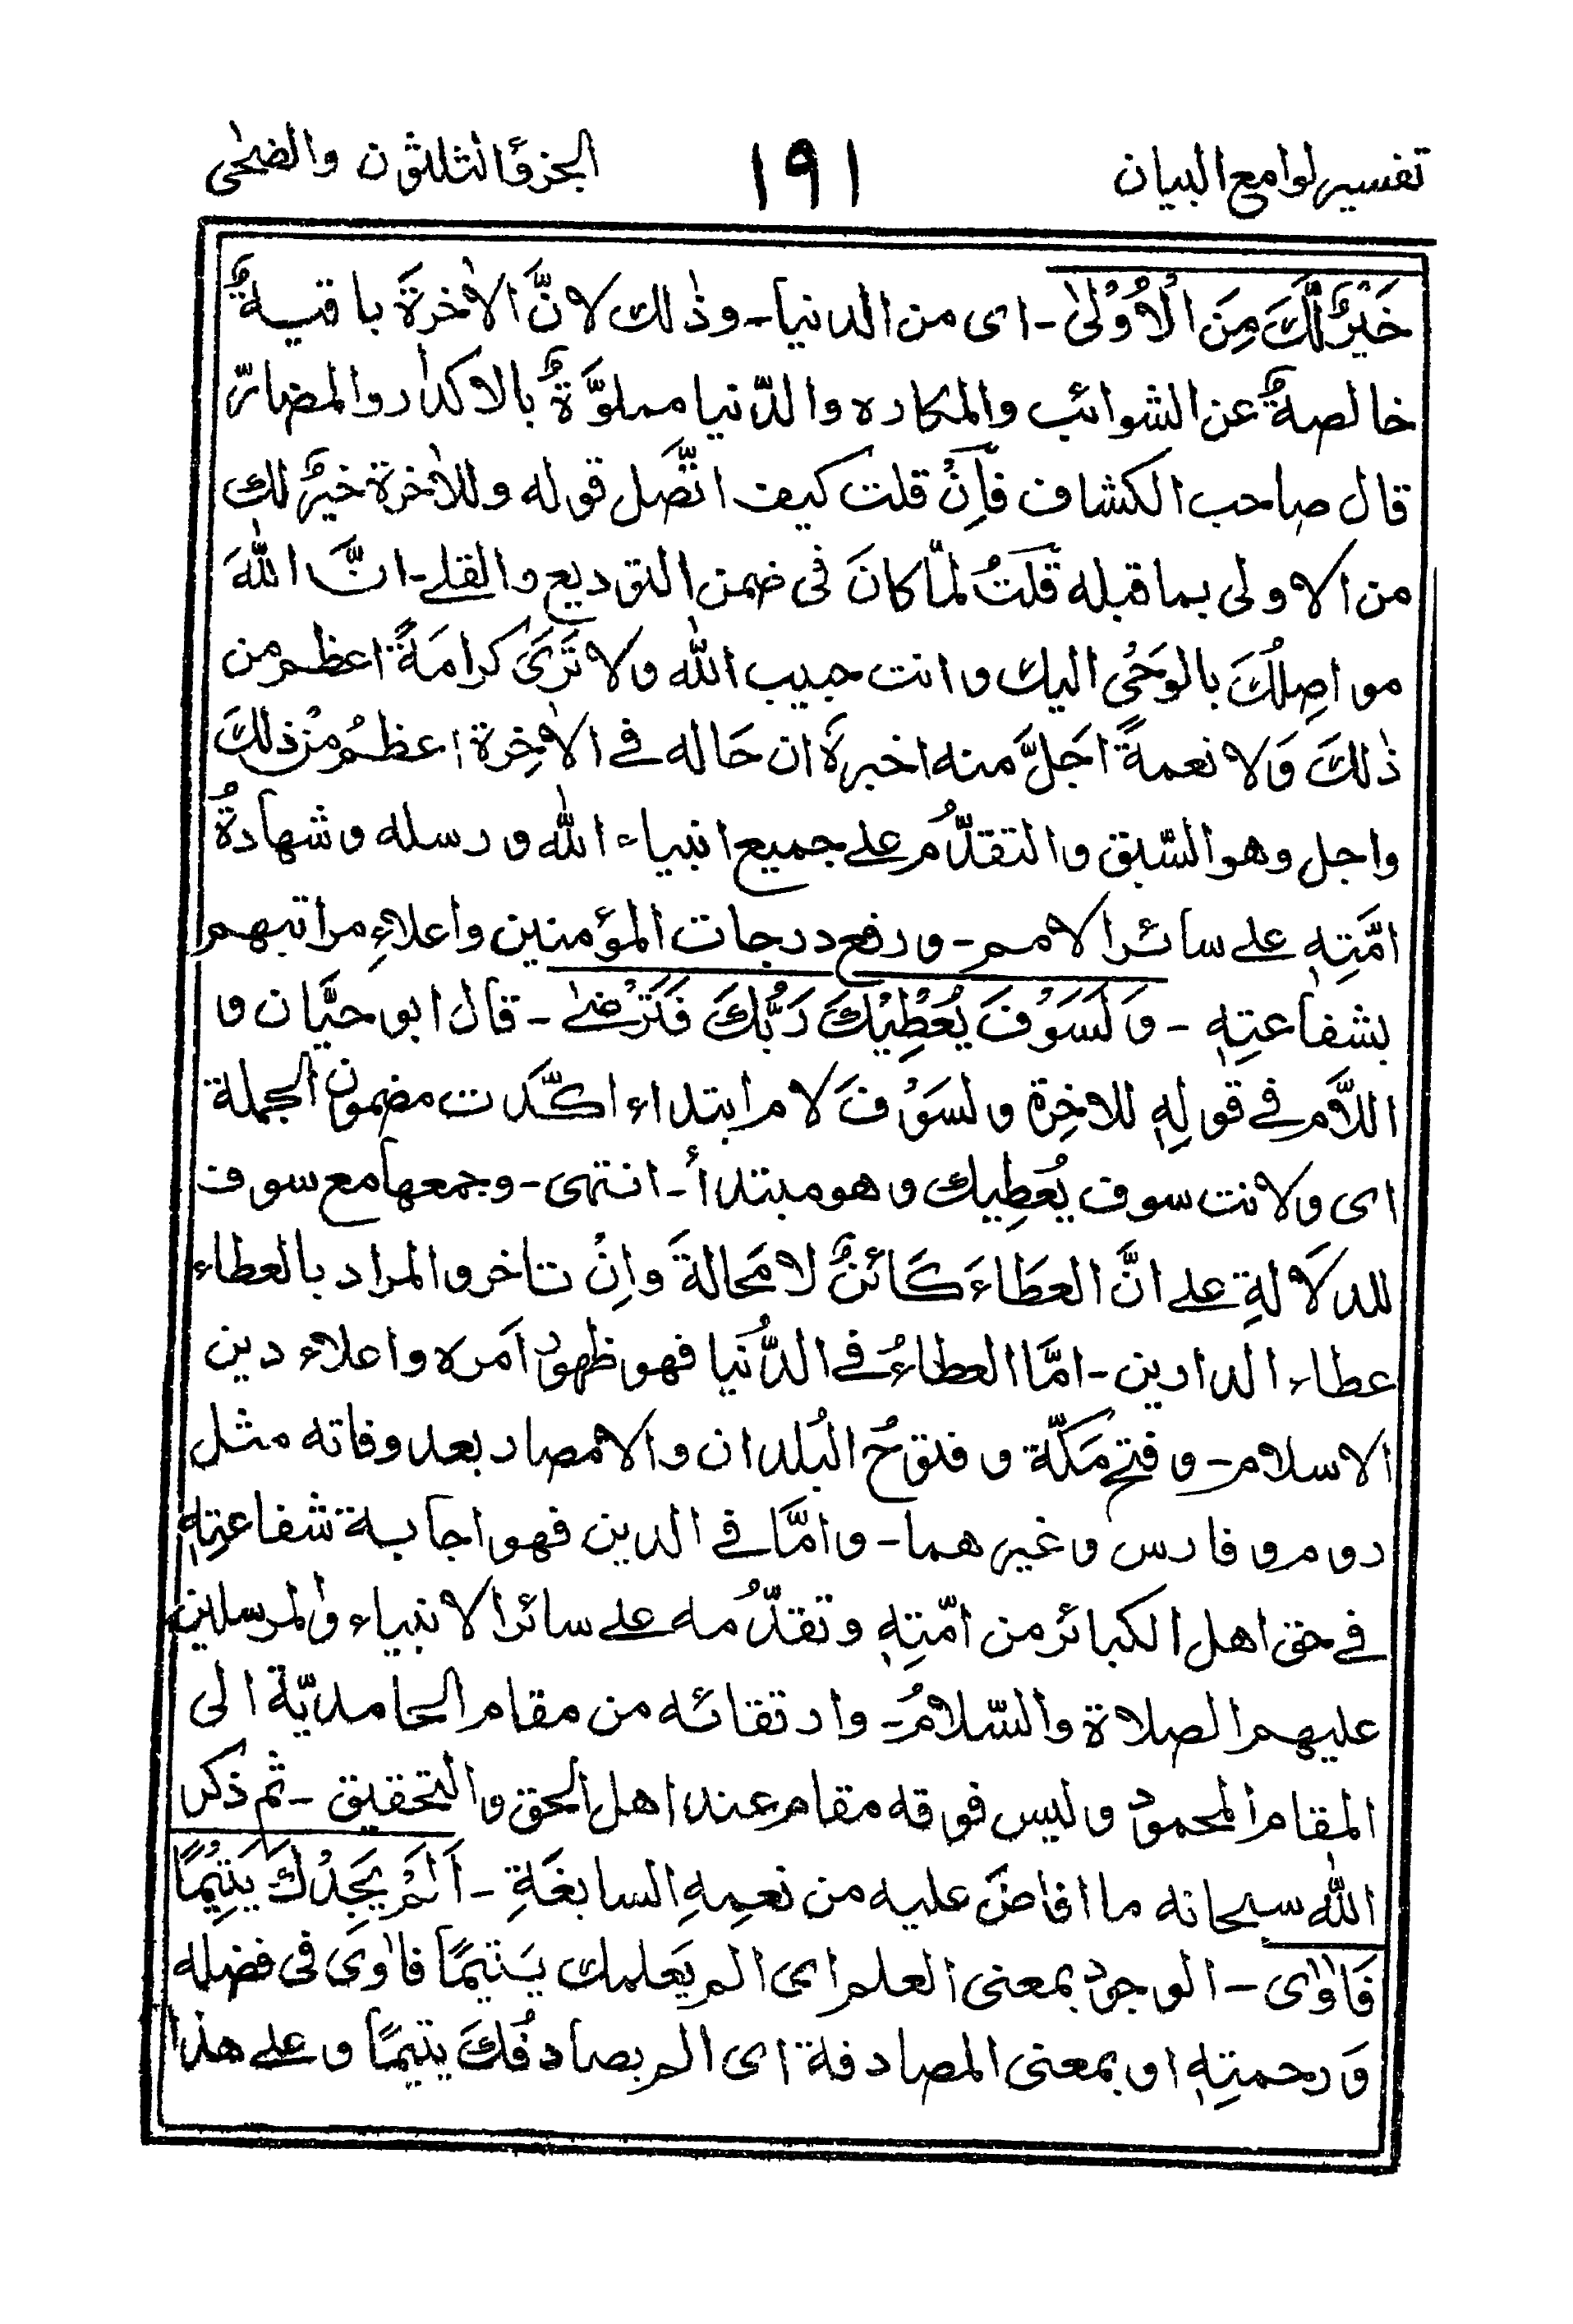 تفسير لوامع البيان ١٩١ الجزء الثلثون والضحٰى
خَيْرٌ لَّكَ مِنَ الْاُوْلٰى - اى من الدنيا - وذٰلك لانَّ الاٰخرةَ باقيةٌ
خالصةٌ عن الشوائب والمكاره والدّنيا مملوَّةٌ بالاكدار والمضارّ
قال صاحب الكشاف فَاِنْ قلت كيف اتَّصل قوله وللاٰخرة خيرٌ لك
من الاولى بما قبله قَلتُ لمّا كانَ فى ضمن التوديع والقلے - انَّ اللّٰهَ
مواصِلُكَ بالوَحْى اليك وانت حبيب اللّٰه ولا تَرَىٰ كرامَةً اعظم من
ذٰلكَ وَلا نعمةً اجَلَّ منه اخبرهٗ ان حَاله فے الاٰخِرة اعظمُ مِنْ ذٰلكَ
واجل وهو السّبق والتقدُّم علے جميع انبياء اللّٰه ورسله وشهادةُ
امَّتِهٖ علے سائر الامم - ورفع درجات المؤمنين واعلاءِ مراتبهم
بشفاعتِهٖ - وَلَسَوْفَ يُعْطِيْكَ رَبُّكَ فَتَرْضٰے - قال ابو حيَّان و
اللَّام فے قولِهٖ للاخِرة ولسَوْفَ لام ابتداء اكَّدت مضمون الجملة
اى ولانت سوف يُعطِيك وهو مبتدأ - انتهى - وجمعها مع سوف
للدلَالةِ علے انَّ العطَاءَ كَائنٌ لا مَحالةَ واِنْ تاخر والمراد بالعطاء
عطاء الدارين - امَّا العطاءُ فے الدُّنيا فهو ظهورُ اَمره واعلاء دين
الاسلام - وفتح مَكّة وفتوحُ البُلدان والامصار بعد وفاته مثل
روم وفارس وغيرهما - وامَّا فے الدين فهو اجابة شفاعتِهٖ
فے حق اهل الكبائر من امّتِهٖ وتقدُّمه علے سائر الانبياء والمرسلين
عليهم الصلاة والسّلامُ - وارتقائه من مقام الحامديّة الى
المقام المحمود وليس فوقه مقام عند اهل الحق والتحقيق - ثم ذكر
اللّٰه سبحانه ما افاضَ عليه من نعمِهِ السابغَةِ - اَلَمْ يَجِدْكَ يَتِيْمًا
فَاٰوٰى - الوجود بمعنى العلم اى الم يَعلمك يَتيمًا فاٰوَى فى فضله
وَرحمتِهٖ او بمعنى المصادفة اى الم يصادفُكَ يتيمًا وعلے هذا